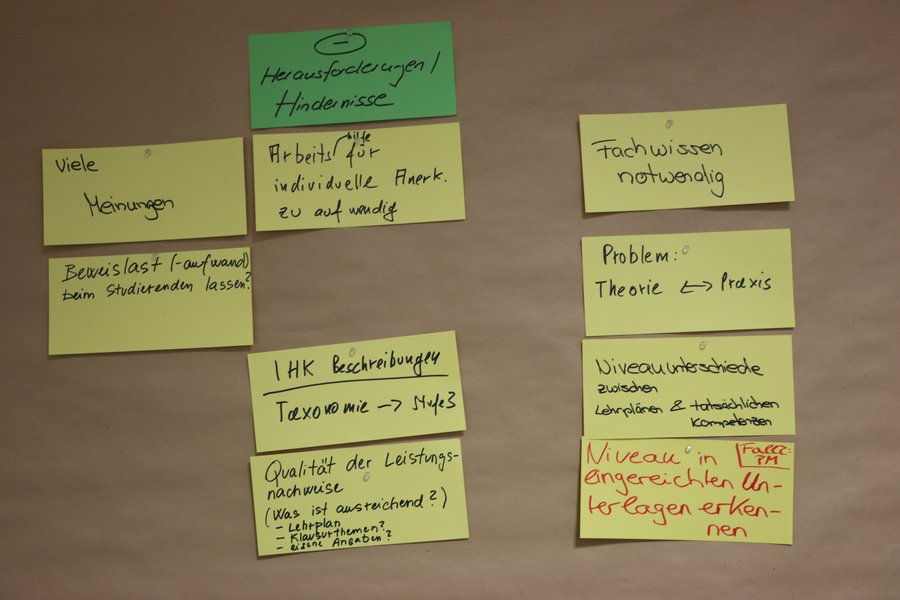 –
Herausforderungen /
Hindernisse
Viele
Meinungen
Beweislast (-aufwand)
beim Studierenden lassen?
hilfe
Arbeits für
individuelle Anerk.
zu aufwendig
IHK Beschreibungen
Taxonomie → Stufe 3
Qualität der Leistungs-
nachweise
(Was ist ausreichend?)
– Lehrplan
– Klausurthemen?
– eigene Angaben?
Fachwissen
notwendig
Problem:
Theorie ↔ Praxis
Niveauunterschiede
zwischen
Lehrplänen & tatsächlichen
Kompetenzen
Niveau in
Fall 2:
PM
eingereichten Un-
terlagen erken-
nen